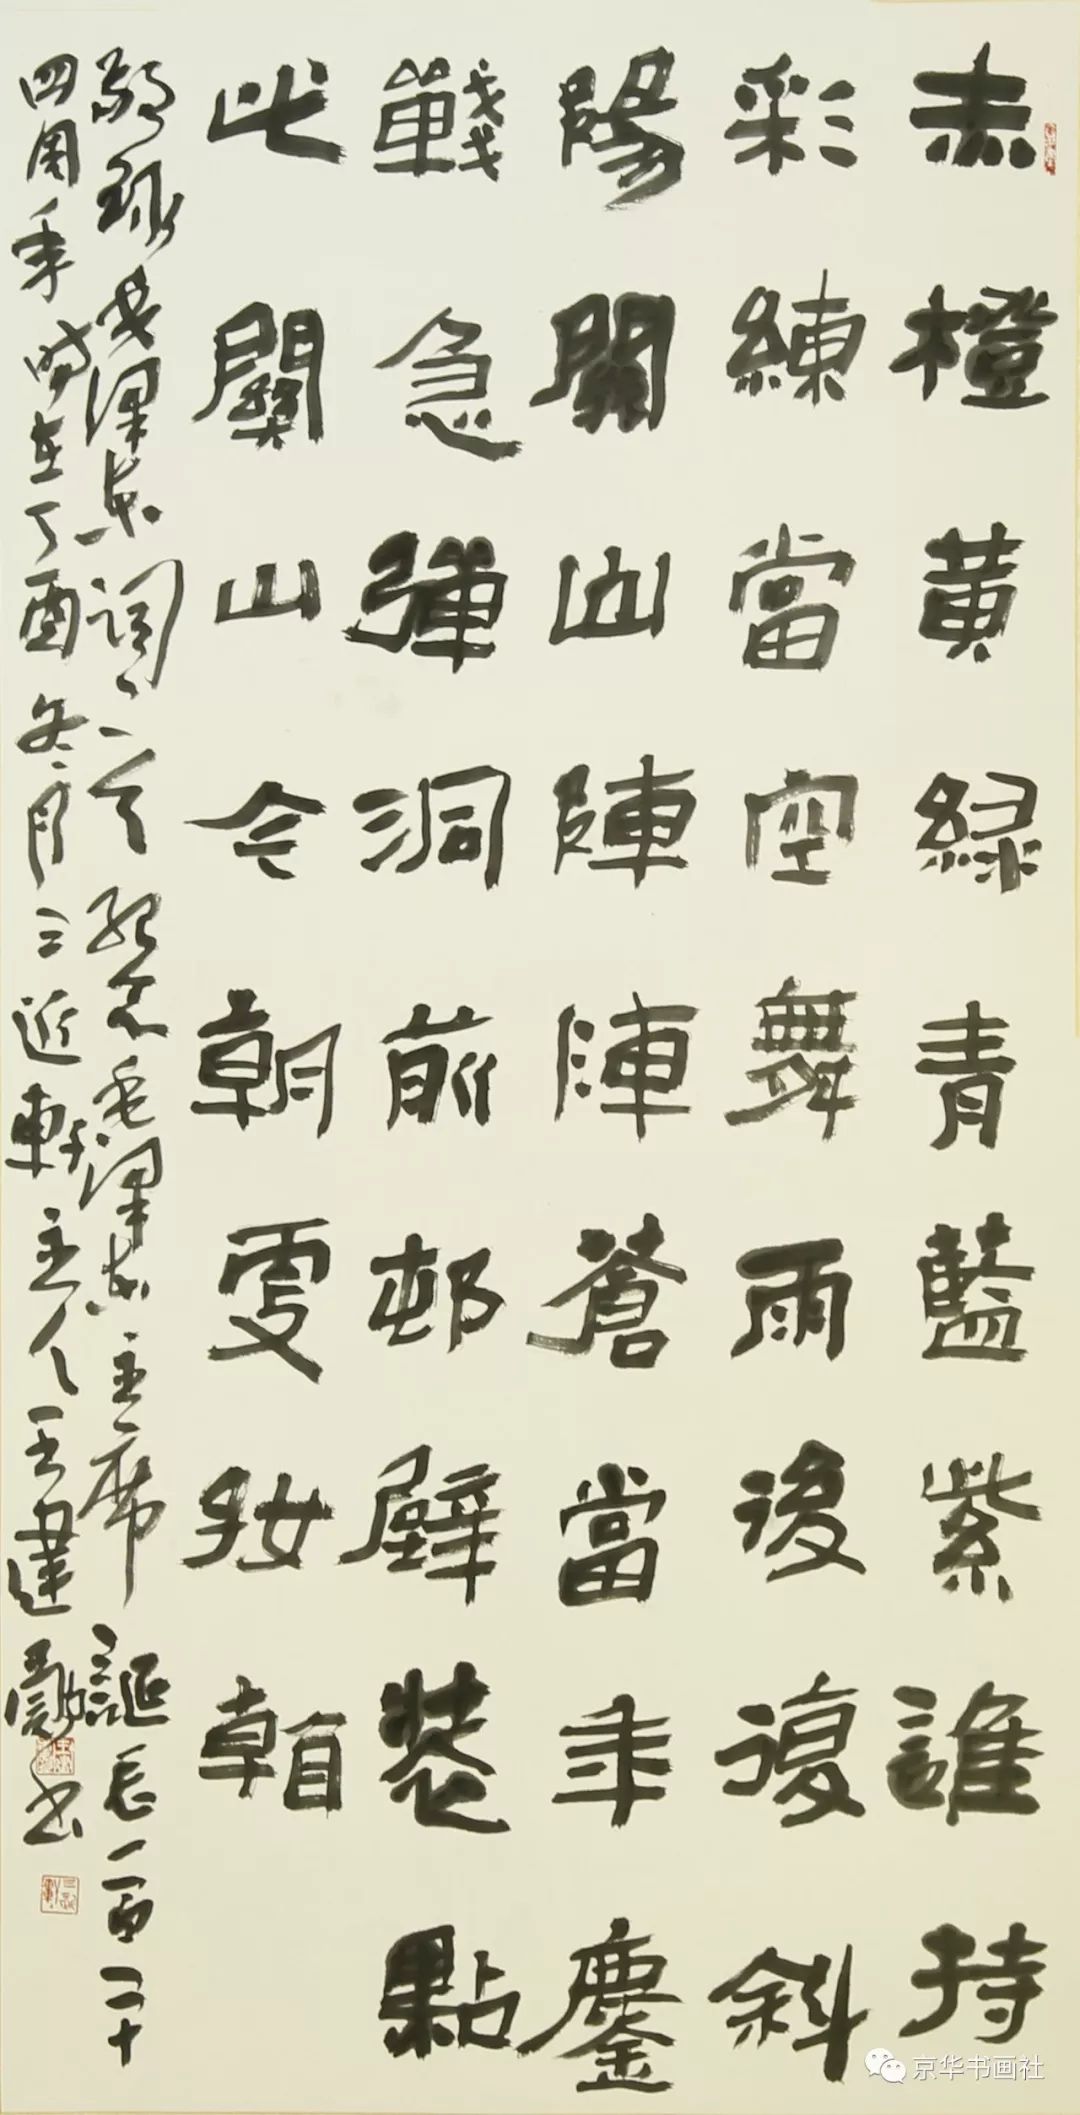 赤橙黄緑青藍紫誰持
彩練當空舞雨後復斜
陽關山陣陣蒼當年鏖
戰急彈洞前邨壁裝點
此關山今朝更好看
敬録毛澤东詞一首紀念毛澤东主席誕辰一百二十
四周年時在丁酉冬月三近軒主人王建書
京华书画社